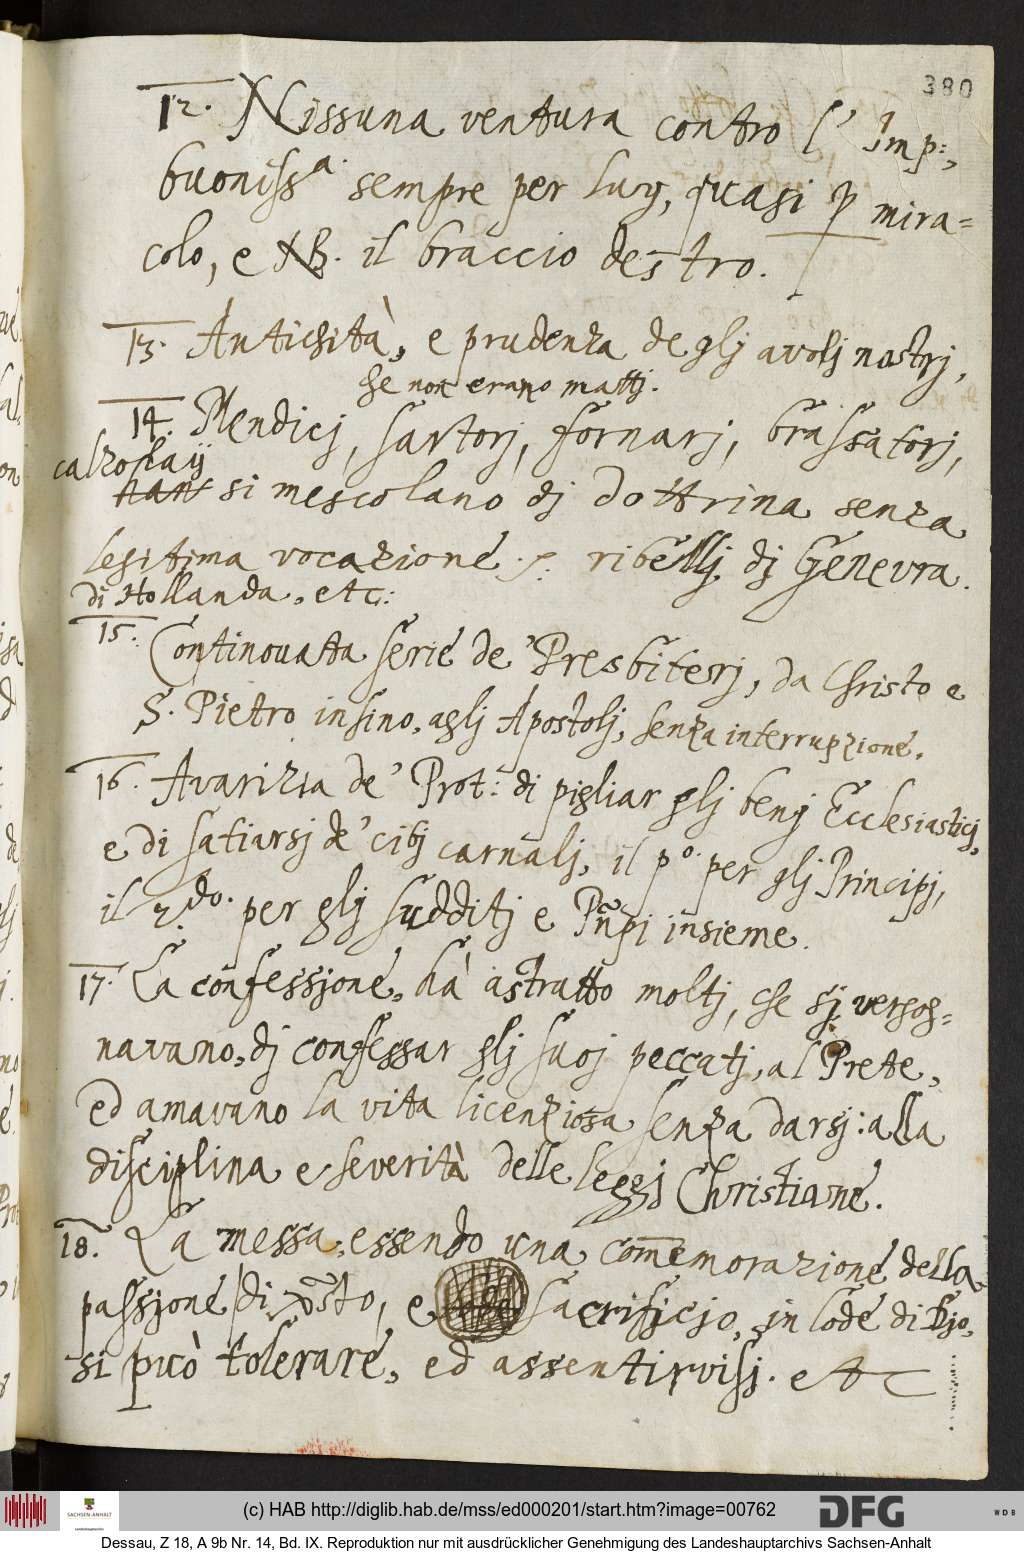 380
12. Nissuna ventura contro l' Imp:,
buoniss.ª sempre per luy, quasi ꝑ mira=
colo, e NB. il braccio destro.
13. Antichità, e prudenza de glj avolj nostrj,
che non erano mattj.
14. Mendicj, sartorj, fornarj, brassatorj,
calzolaij
si mescolano dj dottrina senza
legitima vocazione. ribellj dj Genevra.
di Hollanda, etc:
15. Continovata serie de' Presbiterj, da Christo e
S. Pietro insino, aglj Apostolj, senza interruzione.
16. Avarizia de' Prot: di pigliar glj benj Ecclesiasticj,
e di satiarsj de' cibj carnalj, il p.º per glj Principj,
il 2.do. per glj sudditj e Pñpi insieme.
17. La confessione, hà astratto moltj, che sj vergog=
navano, dj confessar glj suoj peccatj, al Prete,
ed amavano la vita licenziosa senza darsj: alla
disciplina e severità delle leggj Christiane.
18. La messa, essendo una com̄emorazione della
passione di xp̃sto, e sacrificjo, in lode di Djo,
si può tolerare, ed assentirvisj. etc
(c) HAB http://diglib.hab.de/mss/ed000201/start.htm?image=00762
SACHSEN-ANHALT
Landeshauptarchiv
DFG
WDB
Dessau, Z 18, A 9b Nr. 14, Bd. IX. Reproduktion nur mit ausdrücklicher Genehmigung des Landeshauptarchivs Sachsen-Anhalt